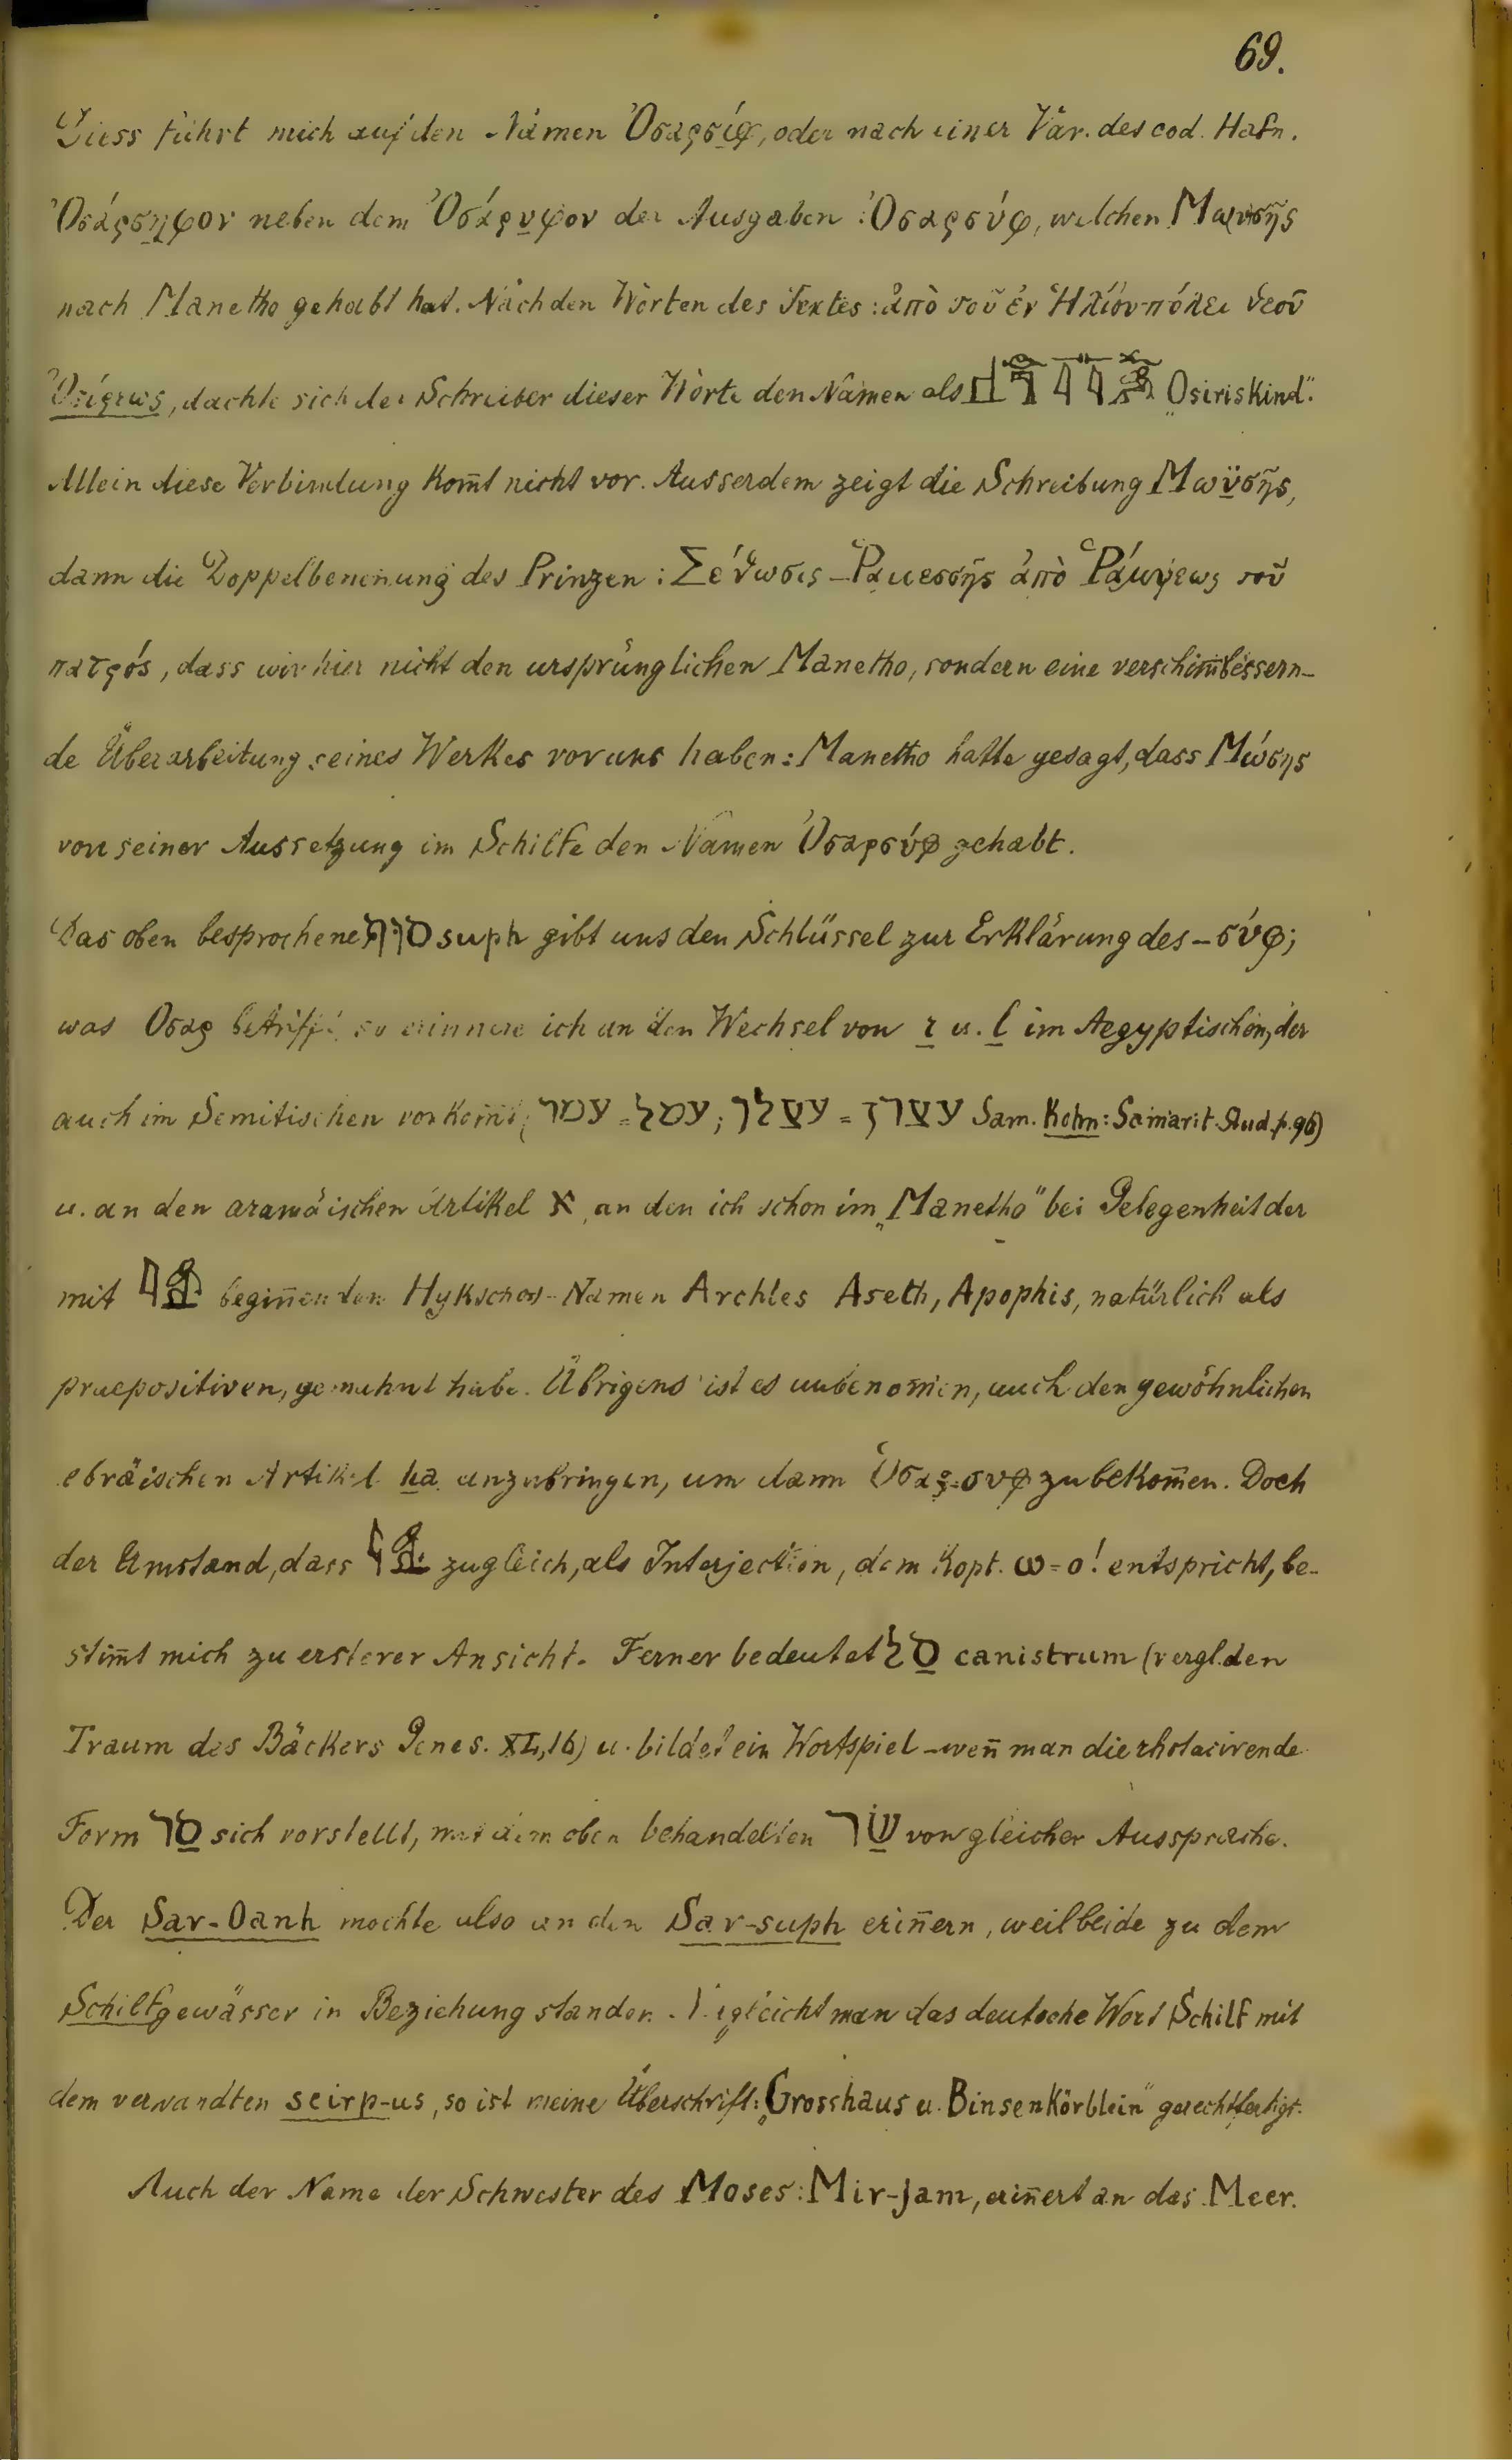 69.
Diess führt mich auf den Namen Ὀσαρσίφ, oder nach einer Var. des cod. Hafn.
Ὀσάρσηφον neben dem Ὀσάρυφον der Ausgaben: Ὀσαρσύφ, welchen Μωυσῆς
nach Manetho gehabt hat. Nach den Worten des Textes: ἀπὸ τοῦ ἐν Ἡλίου πόλει θεοῦ
Ὀσίρεως, dachte sich der Schreiber dieser Worte den Namen als „Osiriskind".
Allein diese Verbindung kom̄t nicht vor. Ausserdem zeigt die Schreibung Μωϋσῆς,
dann die Doppelbenennung des Prinzen: Σέθωσις – Ῥαμεσσῆς ἀπὸ Ῥάμψεως τοῦ
πατρός, dass wir hier nicht den ursprünglichen Manetho, sondern eine verschlim̄bessern-
de Überarbeitung seines Werkes vor uns haben: Manetho hatte gesagt, dass Μώσης
von seiner Aussetzung im Schilfe den Namen Ὀσαρσύφ gehabt.
Das oben besprochene סוף suph gibt uns den Schlüssel zur Erklärung des – σύφ;
was Οσαρ betrifft so erinnere ich an den Wechsel von r u. l im Aegyptischen, der
auch im Semitischen vorkom̄t עמר = עמל; עצלך = עצרן Sam. Kohn: Samarit. Stud. p. 96)
u. an den aramäischen Artikel א, an den ich schon im „Manetho" bei Gelegenheit der
mit begin̄enden Hykschos-Namen Archles Aseth, Apophis, natürlich als
praepositiven, gemahnt habe. Übrigens ist es unbenom̄en, auch den gewöhnlichen
ebräischen Artikel ha anzubringen, um dann Ὁσαρ-συφ zu bekom̄en. Doch
der Umstand, dass zugleich, als Interjection, dem Kopt. ω = o! entspricht, be-
stim̄t mich zu ersterer Ansicht. Ferner bedeutet סל canistrum (vergl. den
Traum des Bäckers Genes. XL, 16) u. bildet ein Wortspiel – wen̄ man die rhotacirende
Form סר sich vorstellt, mit dem oben behandelten שׂר von gleicher Aussprache.
Der Sar-Oanh mochte also an den Sar-suph erin̄ern, weil beide zu dem
Schilfgewässer in Beziehung standen. Vergleicht man das deutsche Wort Schilf mit
dem verwandten scirp-us, so ist meine Überschrift: „Grosshaus u. Binsenkörblein" gerechtfertigt.
Auch der Name der Schwester des Moses: Mir-jam, erin̄ert an das Meer.